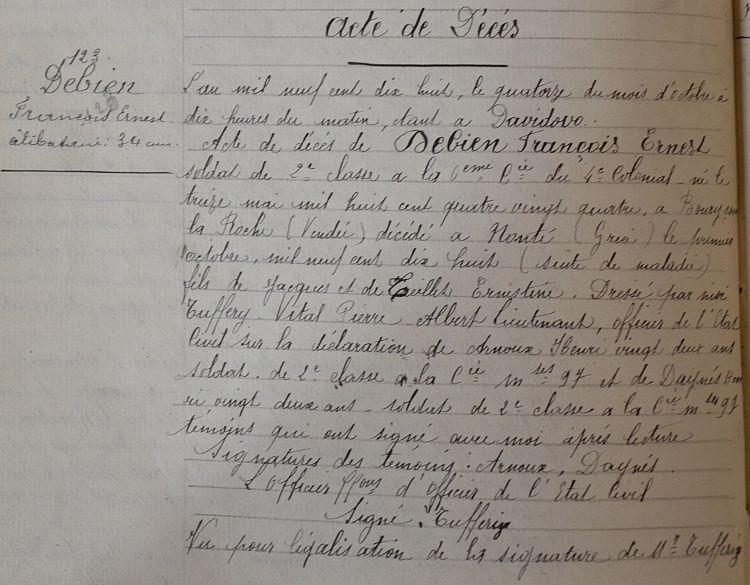 Acte de Décès
123
Debien
François Ernest
célibataire: 34 ans
L'an mil neuf cent dix huit, le quatorze du mois d'octobre à
dix heures du matin, étant a Davidovo.
Acte de décès de Debien François Ernest
soldat de 2e classe a la 6eme Cie du 4e Colonial - né le
treize mai mil huit cent quatre vingt quatre, a Bourg sous
la Roche (Vendée) décédé a Nonté (Grèce) le premier
octobre, mil neuf cent dix huit (suite de maladie)
fils de Jacques et de Teillet Ernestine. Dressé par moi
Tuffery Vital Pierre Albert Lieutenant, officier de l'Etat
Civil sur la déclaration de Arnoux Henri vingt deux ans
soldat de 2e classe a la Cie mses 97 et de Daynés Hen
ri vingt deux ans - soldat de 2e classe a la Cie mses 97
témoins qui ont signé avec moi après lecture
Signatures des témoins: Arnoux, Daynés.
L'Officier ffons d'Officier de l'Etat Civil
Signé: Tuffery
Vu pour légalisation de la signature de Mr Tuffery